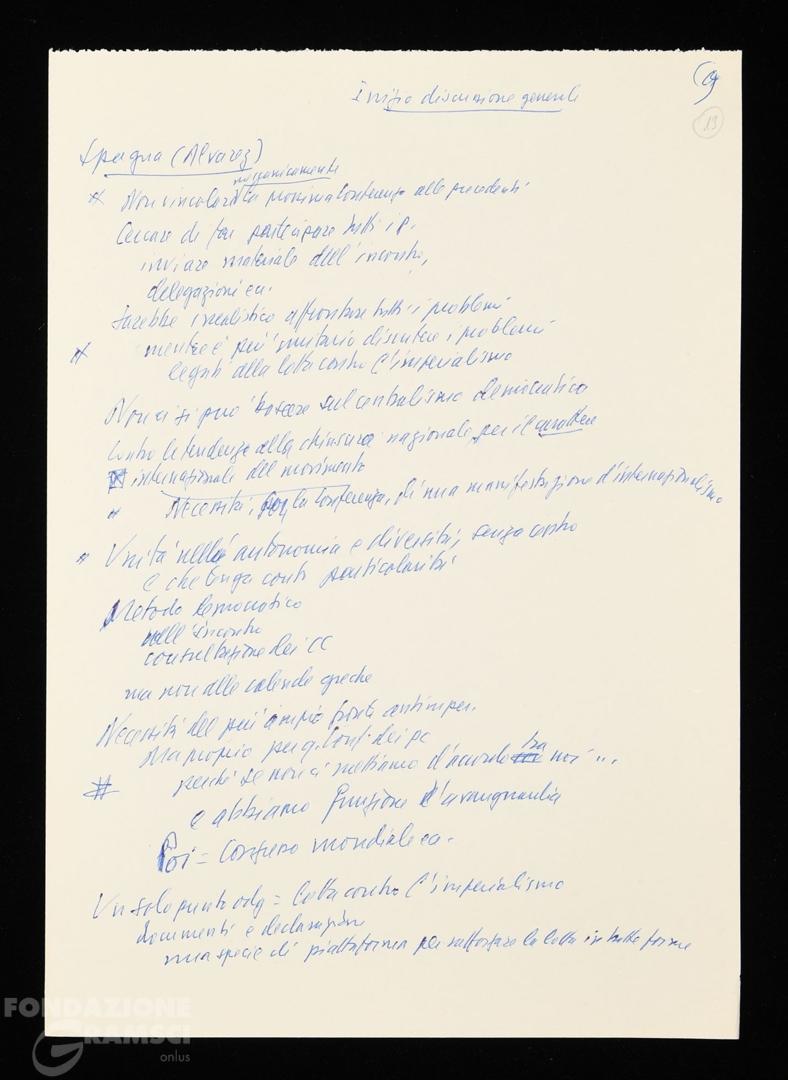 Inizio discussione generale
13
Spagna (Alvarez)
meccanicamente
* Non vincolare la prossima Conferenza alle precedenti
Cercare di far partecipare tutti i p.
inviare materiale dell'incontro,
delegazioni ecc.
Sarebbe irrealistico affrontare tutti i problemi
* mentre è più unitario discutere i problemi
legati alla lotta contro l'imperialismo
Non ci si può basare sul centralismo democratico
Contro le tendenze alla chiusura nazionale, per il carattere
internazionale del movimento
* Necessità, la Conferenza, di una manifestazione d'internazionalismo
* Unità nella autonomia e diversità, senza centro
e che tenga conto particolarità
Metodo democratico
nell'incontro
consultazione dei CC
ma non alle calende greche
Necessità del più ampio fronte antimper.
Ma proprio per q. Conf. dei pc
# perché se non ci mettiamo d'accordo tra noi ...
e abbiamo funzione d'avanguardia
Poi = Congresso mondiale ecc.
Un solo punto odg = lotta contro l'imperialismo
documenti e dichiarazioni
una specie di piattaforma per rafforzare la lotta in tutte forme
FONDAZIONE
GRAMSCI
onlus